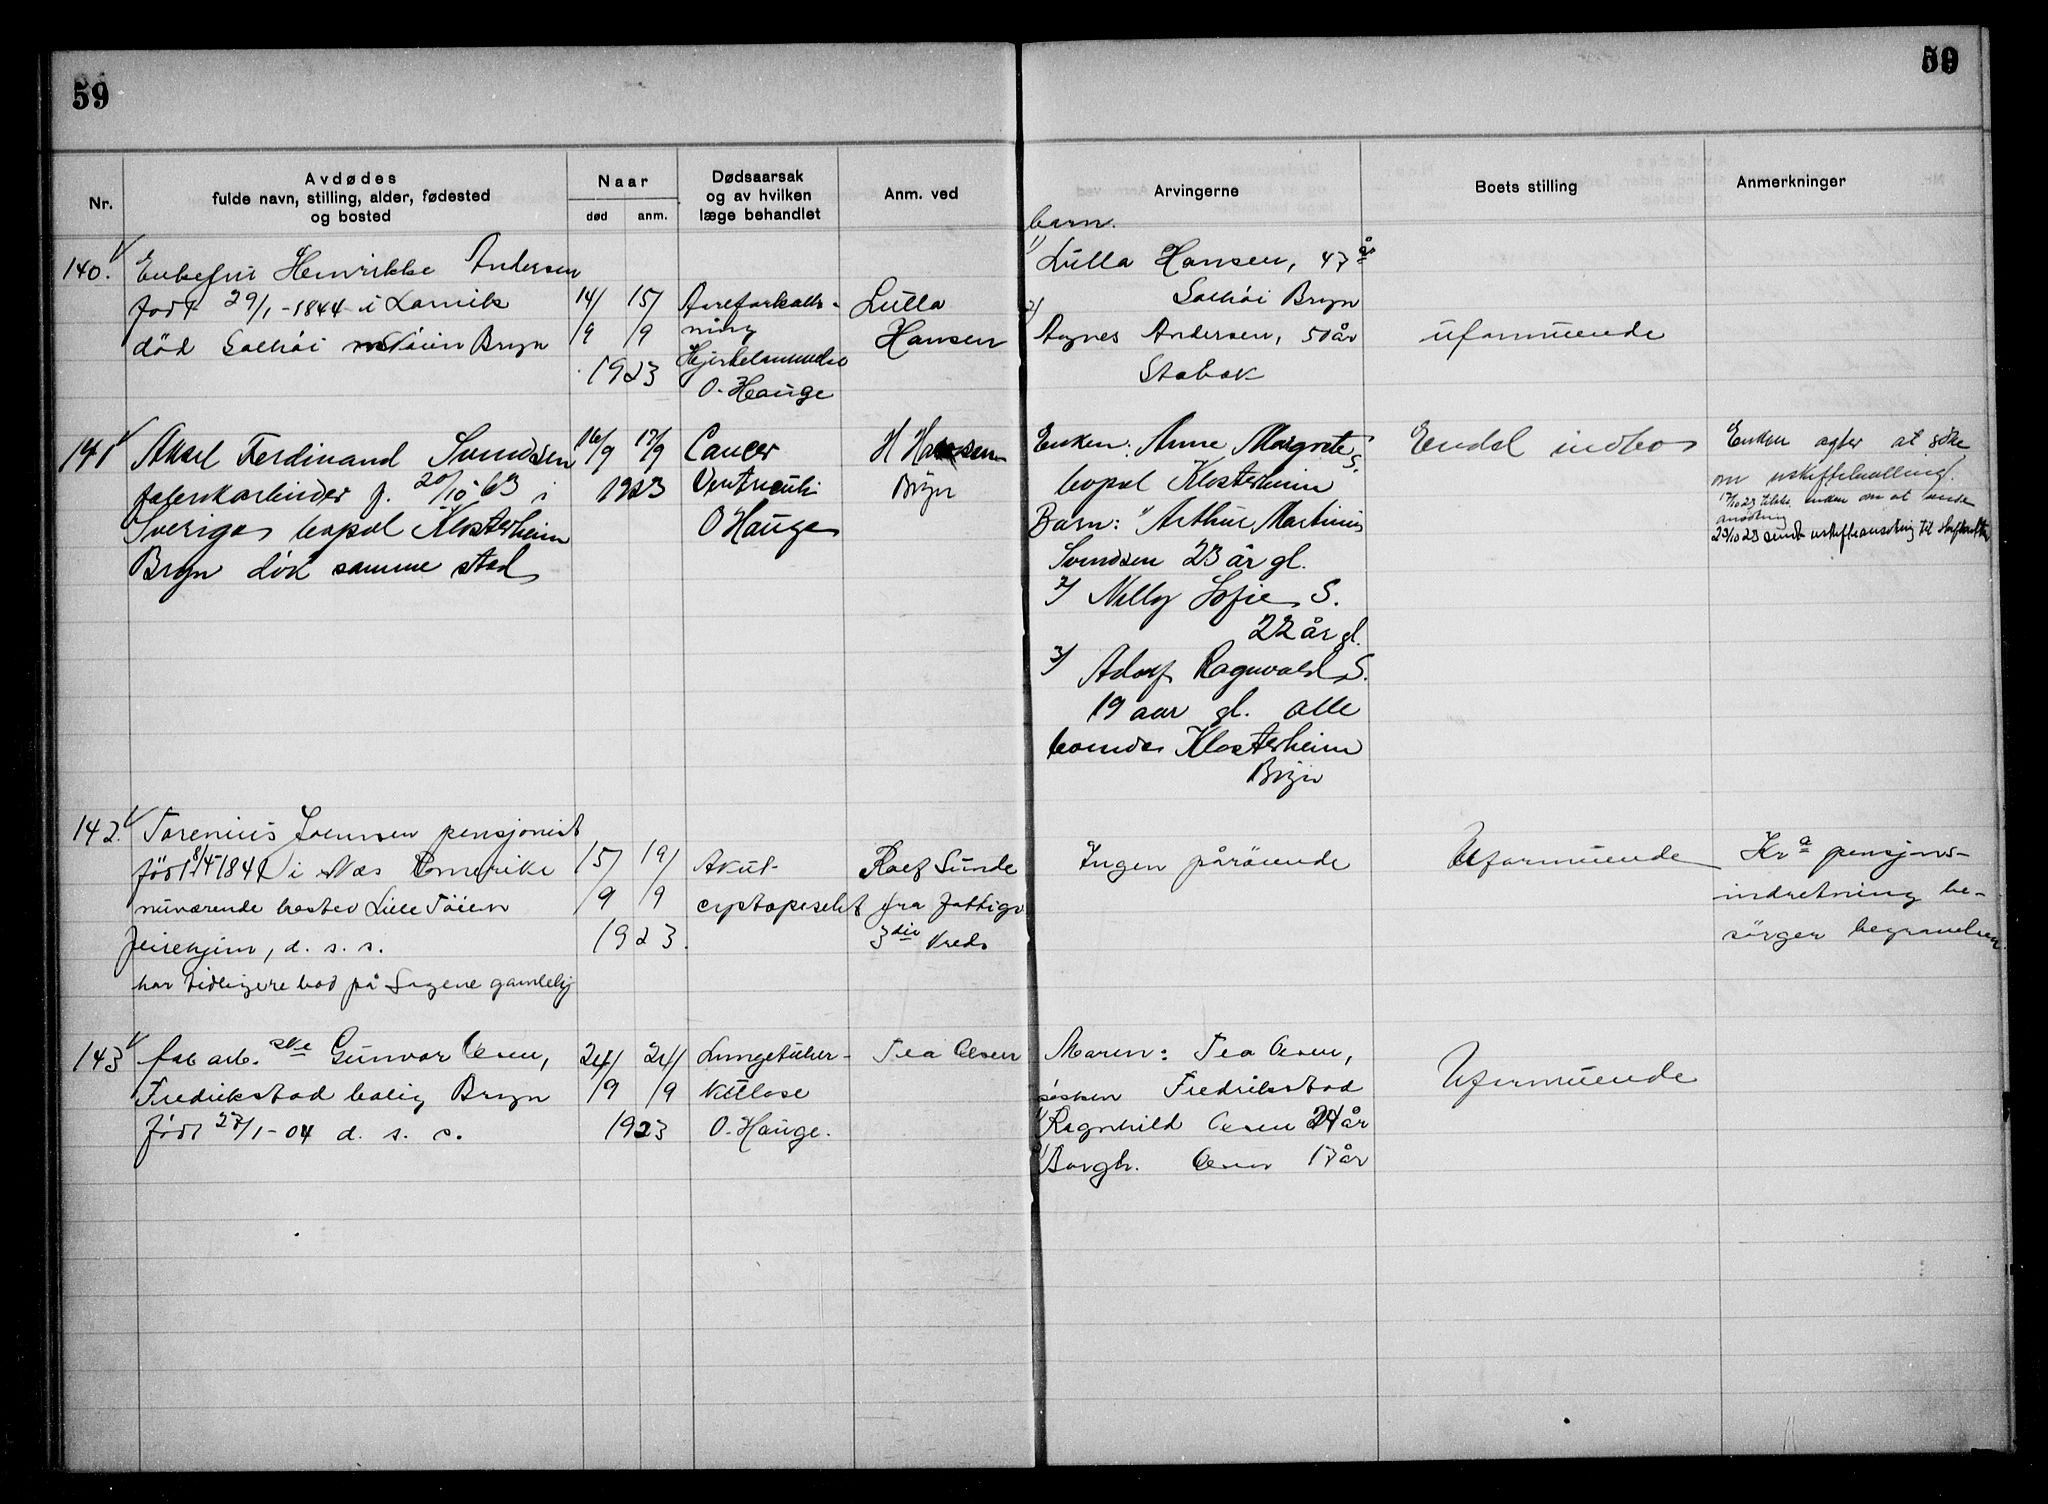 59
59
Nr.
Avdødes
fulde navn, stilling, alder, fødested
og bosted
Naar
død
anm.
Dødsaarsak
og av hvilken
læge behandlet
Anm. ved
Arvingerne
Boets stilling
Anmerkninger
140.
Enkefru Henrikke Andersen
født 29/1-1844 i Larvik
død Solhöi Töien Bryn
14/9 15/9
1923
Aareforkalk-
ning
Hjertelammelse
O. Hauge
Lulla
Hansen
barn.
1) Lulla Hansen, 47 år
Solhöi Bryn
2)
Agnes Andersen, 50 år
Stabæk
uformuende
141
Aksel Ferdinand Svendsen
fabrikarbeider f. 20/10 63 i
Sverige bopæl Klosterheim
Bryn död samme sted
16/9 17/9
1923
Cancer
Ventriculi
O Hauge
H Hansen
Bryn
Enken: Anne Margrete S.
bopæl Klosterheim
Barn: 1) Arthur Martinius
Svendsen 23 år gl.
2) Nelly Sofie S.
22 år gl.
3) Adolf Ragnvald S.
19 aar gl. alle
boende Klosterheim
Bryn
Endel indbo
Enken agter at söke
om uskiftebevilling.
17/10 23 tilskr. enken om at sende
ansökning
23/10 23 sendt uskifteansökning til
142.
Torenius Joensen pensjonist
född 8/4-1841 i Næs Romerike
nuværende bosted Lille Töien
pleiehjem, d. s. s.
har tidligere bod på Sagene gamlehj
15/9 19/9
1923.
Akut
Rolf Sunde
fra Fattigv
3die Kreds
Ingen pårörende
Uformuende
Kra pensjons-
indretning be-
sörger begravelsen.
143
fab arb. ske Gunvor Olsen,
Fredrikstad bolig Bryn
född 27/1-04 d. s. s.
24/9 24/9
1923
Lungetuber-
kulose
O. Hauge.
Tea Olsen
Moren: Tea Olsen,
söskn Fredrikstad
1) Ragnhild Olsen 24 år
2) Borgh. Olsen 17 år
Uformuende